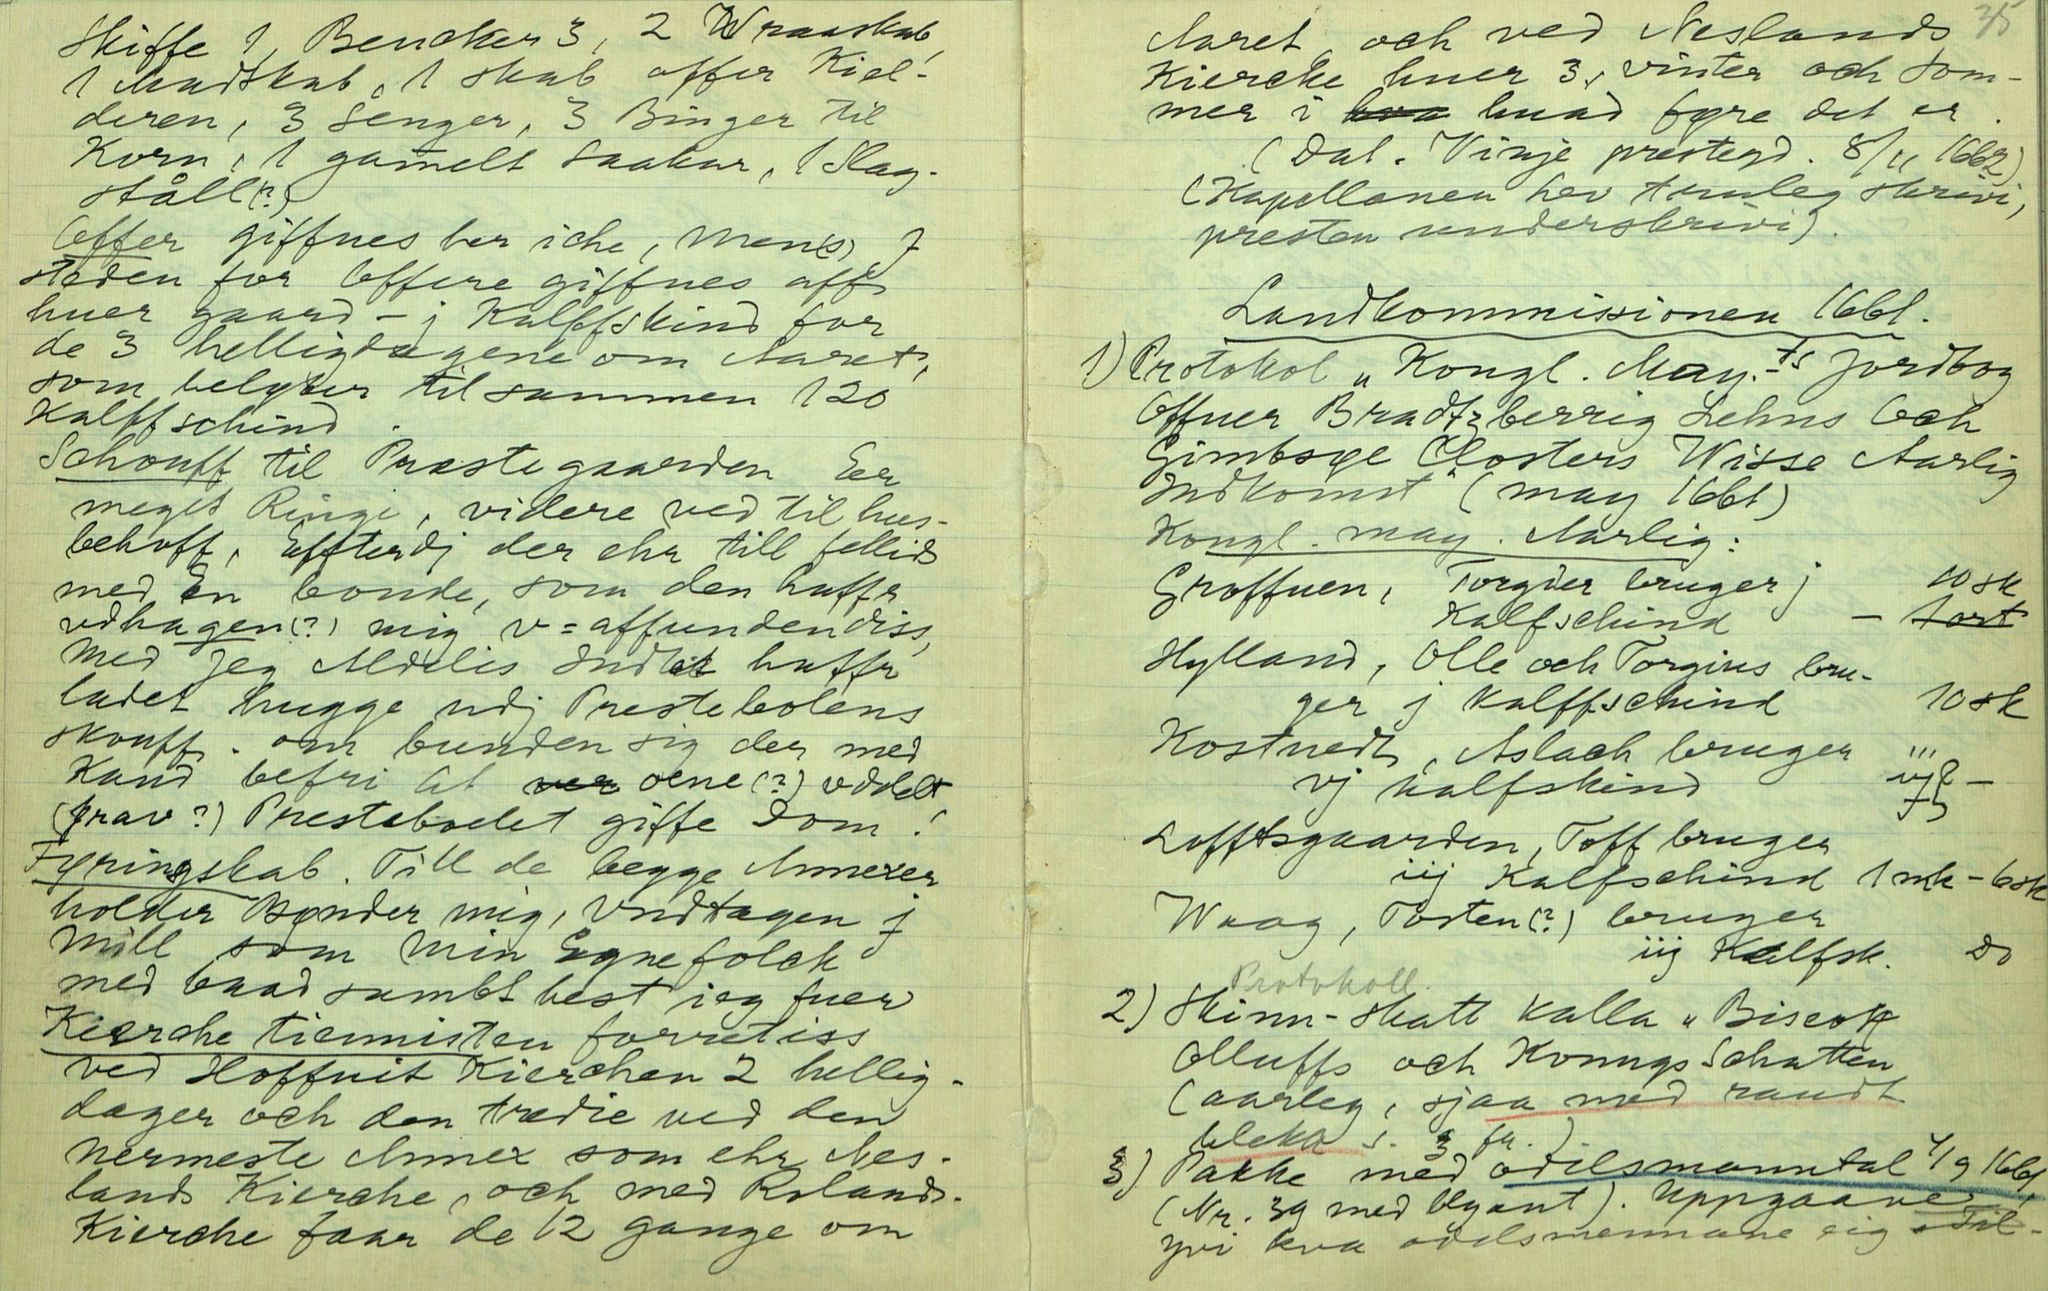 Skiffe 1, Bencker 3, 2 Wraaskab,
1 Madskab, 1 skab offer Kiel-
deren, 3 senger, 3 Binger til
Korn, 1 gamelt saakar, 1 Slag-
ståll (?)
Offer giffues her iche, men(s) J
steden for Offere giffues aff
huer gaard - j Kalffskind for
de 3 helligdagene om Aaret,
som belyber til sammen 120
Kalffschind.
Schouff til Præstegaarden Er
meget Ringe, videre ved til hus-
behoff, Effterdj der ehr till fellids
med En bonde, som den haffr
vdhagen (?) mig v=affundendiss,
Med Jeg Aldelis Indtet haffr
ladet hugge udj Prestebolens
skouff. om bunden sig der med
Kand befri At oene (?) vddelt
(prav?) Prestebodet giffe Dom!
Fyringskab. Till de begge Annexer
holder Bønder mig, Vndtagen j
Mill som Min Egne folck
med baad sambt hest jeg fuer
Kierche tiennisten forretiss
ved Hoffuit Kierchen 2 hellig-
dager och den tredie ved den
nermeste Annex som ehr Nes-
lands Kierche, och med Rolands-
Kierche faar de 12 gange om
35
Aaret, och ved Neslands
Kiercke huer 3, vinter och som-
mer i huad føre det er.
(Dat. Vinje prestegd. 8/11 1662)
(Kapellanen hev truleg skrivi,
presten underskrivi).
Landkommissionen 1661.
1) Protokol "Kongl. May.ts Jordbog
Offuer Bradtzberrig Lehns Och
Gimbsøe Closters Wisse Aarlig
Indkomst" (may 1661)
Kongl. may. Aarlig:
Groffuen, Torgier bruger j 10 sk
Kalfschind - tort
Hylland, Olle och Torgius bru-
ger j Kalffschind 10 sk
Kostuedt, Aslach bruger
vj kalfskind
Lofftsgaarden, Toff bruger
iij Kalfschind 1 mk - 6 sk
Waag, Tosten (?) bruger
iij Kalfsk. Do
Protokoll.
2) Skinn-skatt kalla "Biscop
Olluffs och Konngs Schatten
(aarleg, sjaa med raudt
blekk s. 3 fr.)
3) Pakke med odelsmanntal 4/9 1661,
(Nr. 39 med Ugant). Uppgaave
yvi kva odelsmennane eig Til-